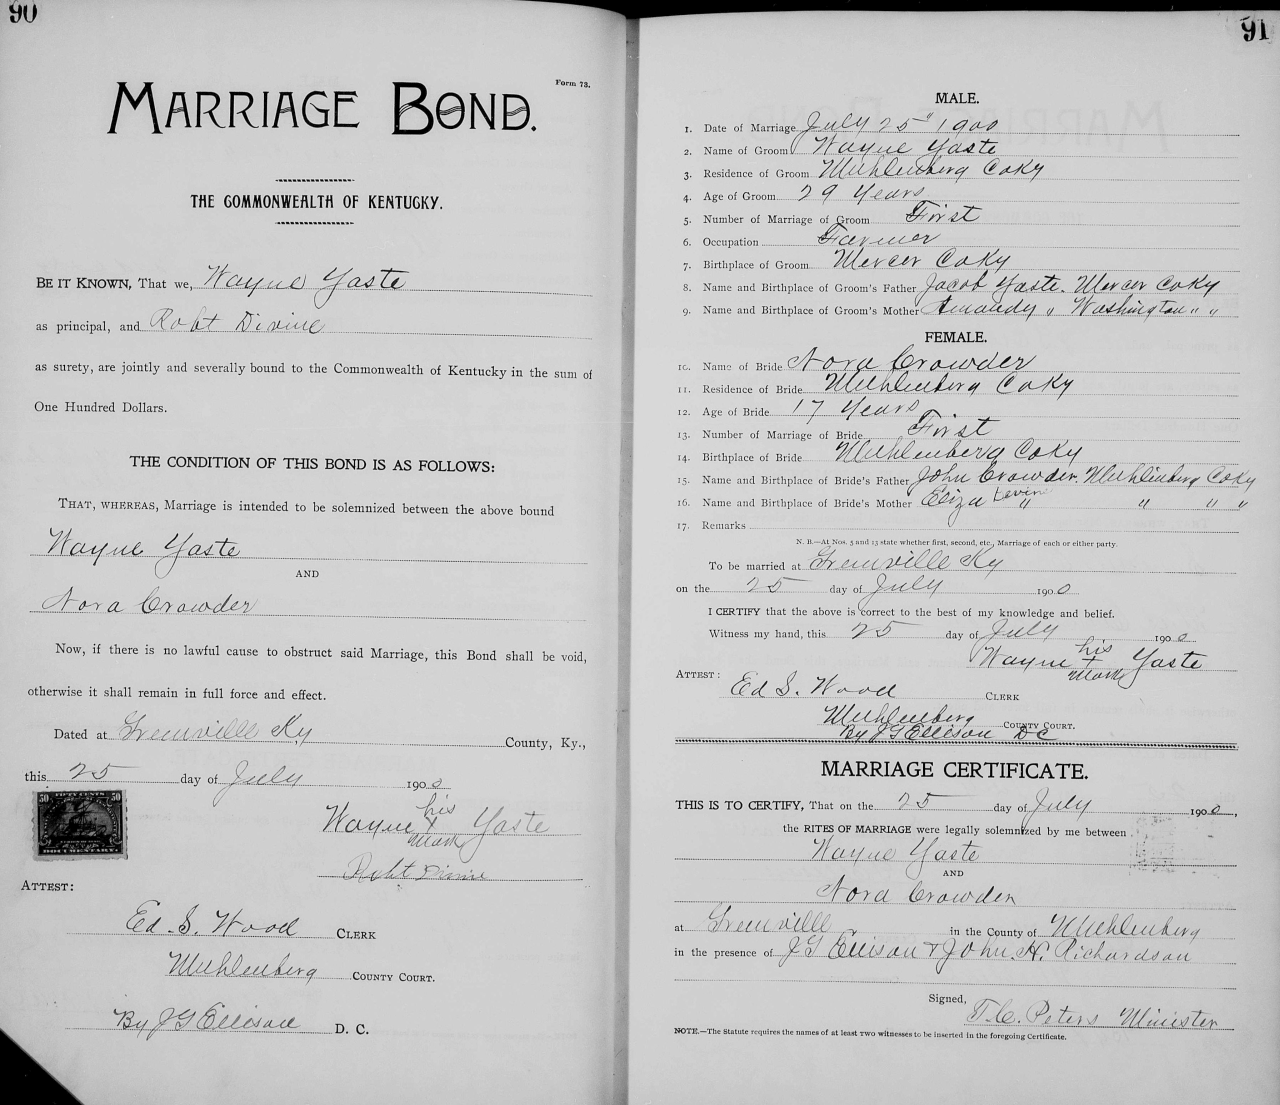 90
Form 73.
MARRIAGE BOND.
THE COMMONWEALTH OF KENTUCKY.
BE IT KNOWN, That we, Wayne Yaste
as principal, and Robt Divine
as surety, are jointly and severally bound to the Commonwealth of Kentucky in the sum of
One Hundred Dollars.
THE CONDITION OF THIS BOND IS AS FOLLOWS:
THAT, WHEREAS, Marriage is intended to be solemnized between the above bound
Wayne Yaste
AND
Nora Crowder
Now, if there is no lawful cause to obstruct said Marriage, this Bond shall be void,
otherwise it shall remain in full force and effect.
Dated at Greenville Ky County, Ky.,
this 25 day of July 1900
50 FIFTY CENTS 50
DOCUMENTARY.
Wayne his X mark Yaste
Robt Divine
ATTEST:
Ed. S. Wood CLERK
Muhlenberg COUNTY COURT.
By J G Ellison D. C.
91
MALE.
1. Date of Marriage July 25" 1900
2. Name of Groom Wayne Yaste
3. Residence of Groom Muhlenberg Co Ky
4. Age of Groom 29 Years
5. Number of Marriage of Groom First
6. Occupation Farmer
7. Birthplace of Groom Mercer Co Ky
8. Name and Birthplace of Groom's Father Jacob Yaste. Mercer Co Ky
9. Name and Birthplace of Groom's Mother Amandy " Washington " "
FEMALE.
10. Name of Bride Nora Crowder
11. Residence of Bride Muhlenberg Co Ky
12. Age of Bride 17 Years
13. Number of Marriage of Bride First
14. Birthplace of Bride Muhlenberg Co Ky
15. Name and Birthplace of Bride's Father John Crowder. Muhlenberg Co Ky
16. Name and Birthplace of Bride's Mother Eliza " " " "
17. Remarks
N. B.—At Nos. 5 and 13 state whether first, second, etc., Marriage of each or either party.
To be married at Greenville Ky
on the 25 day of July 1900
I CERTIFY that the above is correct to the best of my knowledge and belief.
Witness my hand, this 25 day of July 1900
Wayne his X mark Yaste
ATTEST:
Ed S. Wood CLERK
Muhlenberg COUNTY COURT.
By J G Ellison D C
MARRIAGE CERTIFICATE.
THIS IS TO CERTIFY, That on the 25 day of July 1900,
the RITES OF MARRIAGE were legally solemnized by me between
Wayne Yaste
AND
Nora Crowder
at Greenville in the County of Muhlenberg
in the presence of J G Ellison & John H. Richardson
Signed,
T. C. Peters Minister
NOTE.—The Statute requires the names of at least TWO witnesses to be inserted in the foregoing Certificate.